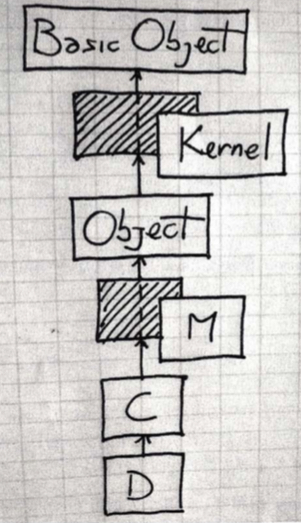 Basic Object
Kernel
Object
M
C
D